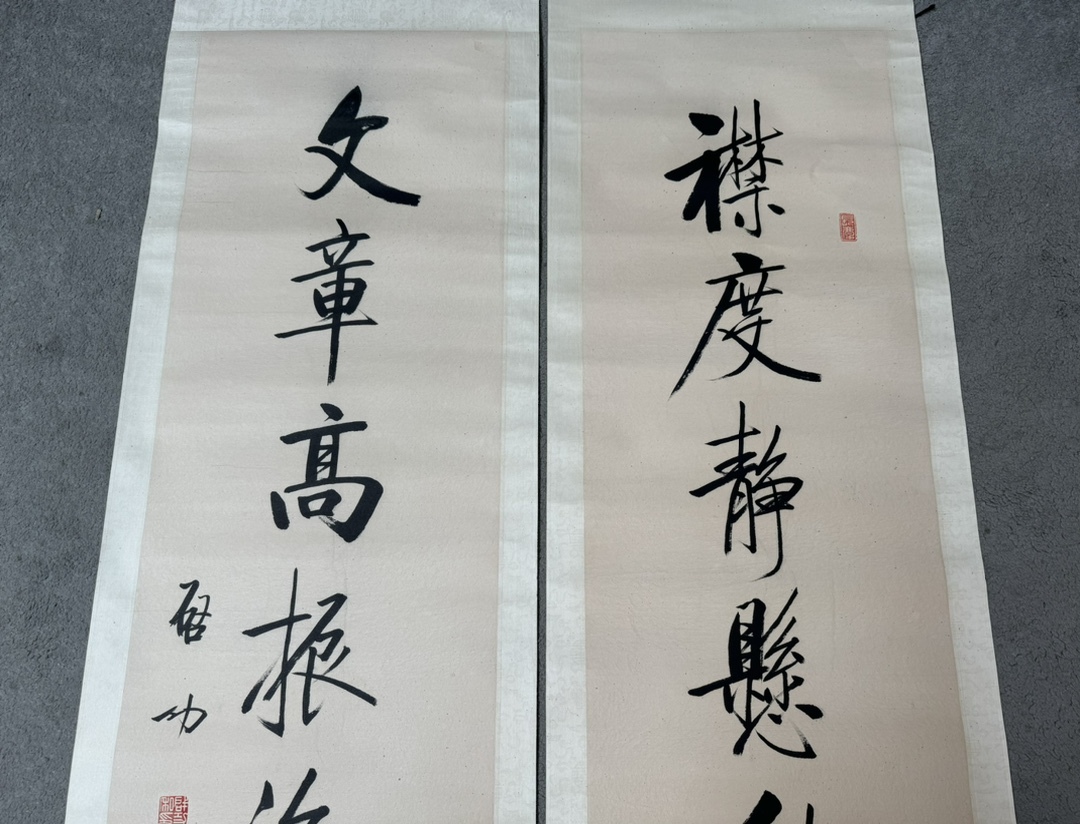 襟度静懸
文章高振
啓功